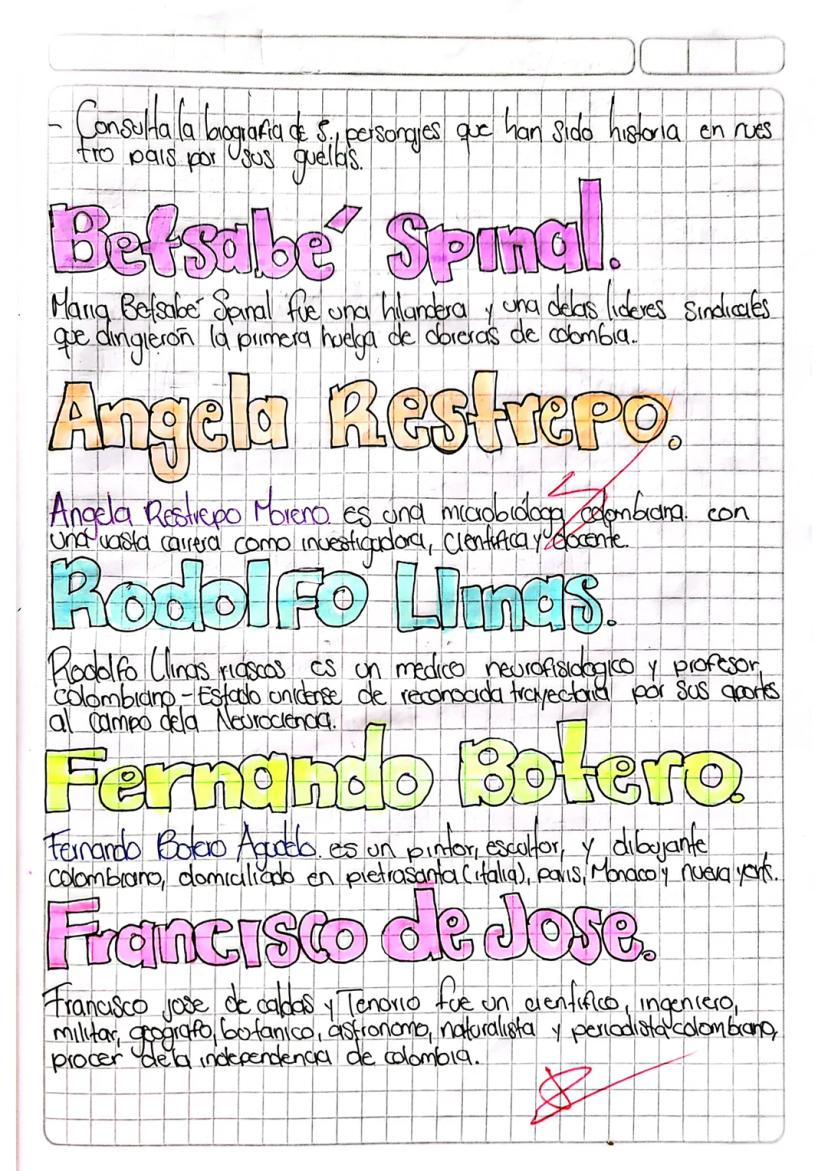 - Consulta la biografia de 5., personajes que han sido historia en nues
tro pais por sus guellas.
Betsabé Spinal.
Maria Betsabé Spinal fue una hilandera y una delas lideres Sindicales
que dirigieron la primera huelga de obreras de colombia..
Angela Restrepo.
Angela Restrepo Moreno. es una microbióloga colombiana. con
una vasta carrera como investigadora, cientifica y docente.
Rodolfo Llinas.
Rodolfo Llinas riascos es un medico neurofisiologico y profesor
colombiano - Estado unidense de reconocida trayectoria por sus aportes
al campo dela Neurociencia.
Fernando Botero.
Fernando Botero Agudelo. es un pintor, escultor, y dibujante
colombiano, domiciliado en pietrasanta (italia), paris, Monaco y nueva york.
Francisco de Jose.
Francisco jose de caldas y Tenorio fue un cientifico, ingeniero,
militar, geografo, botanico, astronomo, naturalista y periodista colombiano,
procer dela independencia de colombia.